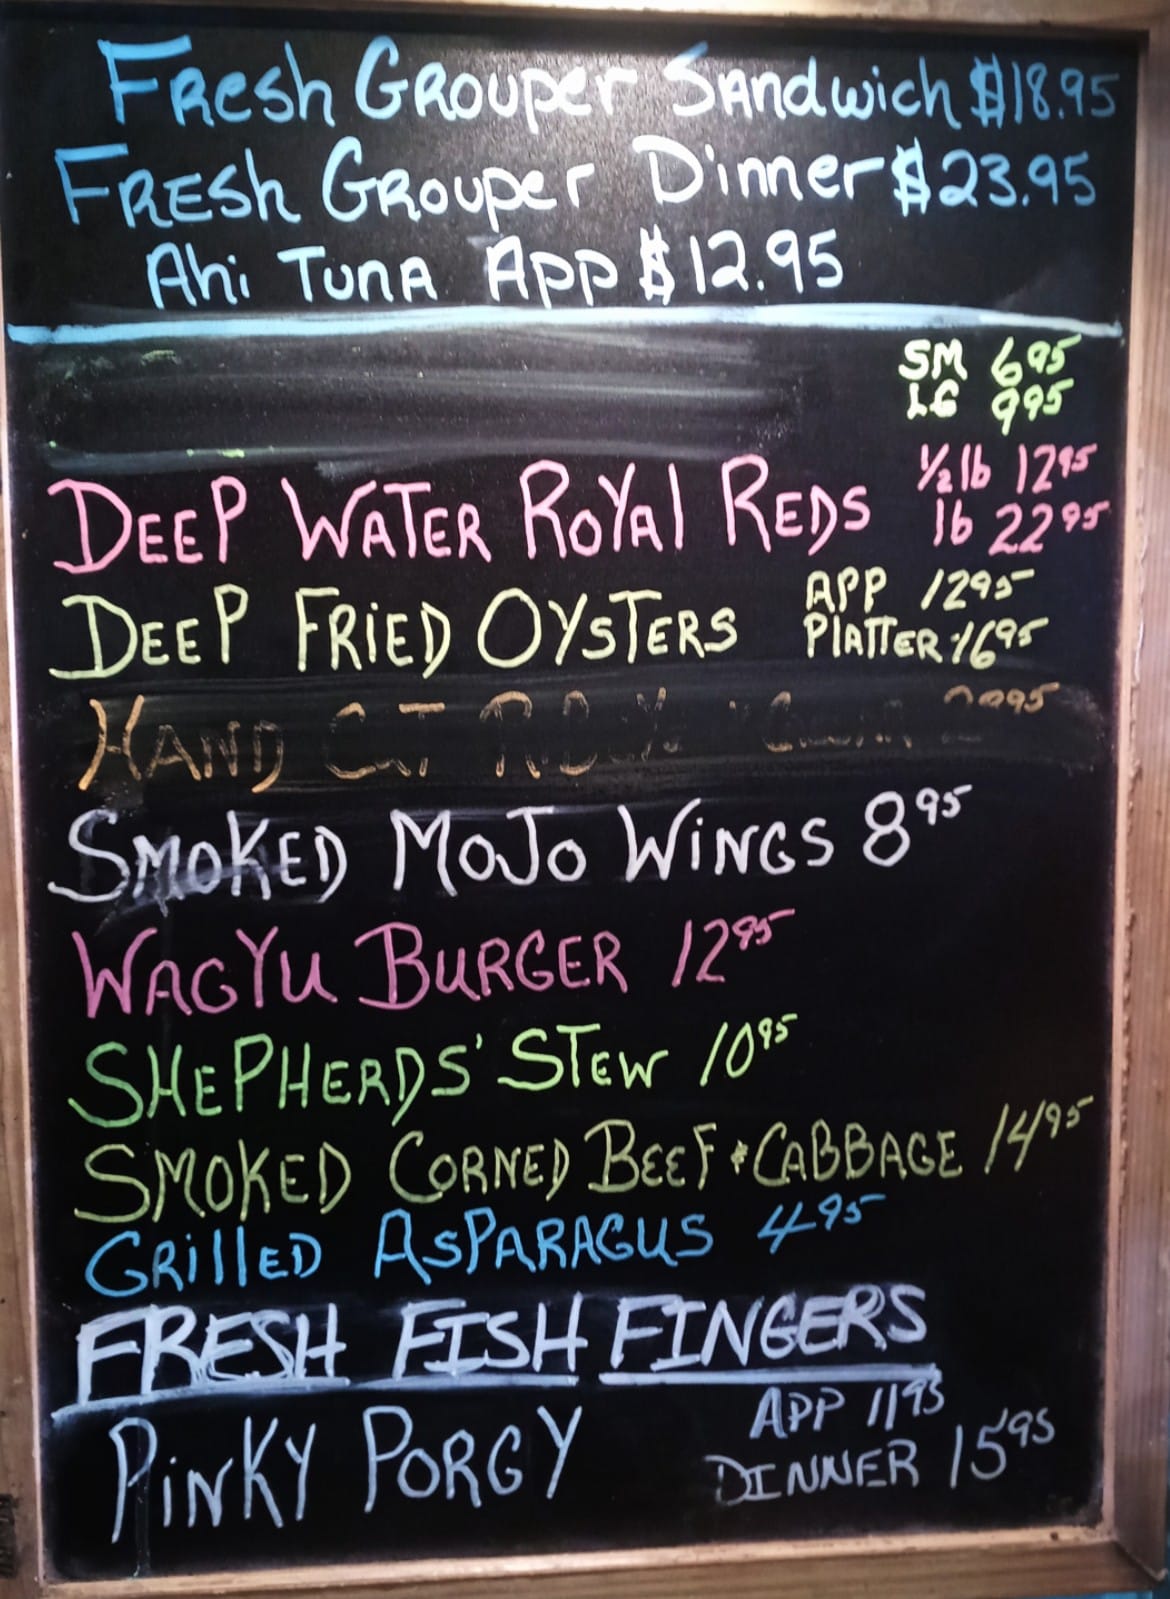 Fresh Grouper Sandwich $18.95
Fresh Grouper Dinner $23.95
Ahi Tuna App $12.95
SM 6 95
LG 9 95
DEEP WATER ROYAL REDS ½ lb 12 95
lb 22 95
DEEP FRIED OYSTERS APP 12 95
PLATTER 16 95
HAND CUT
SMOKED MOJO WINGS 8 95
WAGYU BURGER 12 95
SHEPHERDS' STEW 10 95
SMOKED CORNED BEEF & CABBAGE 14 95
GRILLED ASPARAGUS 4 95
FRESH FISH FINGERS
PINKY PORGY APP 11 95
DINNER 15 95